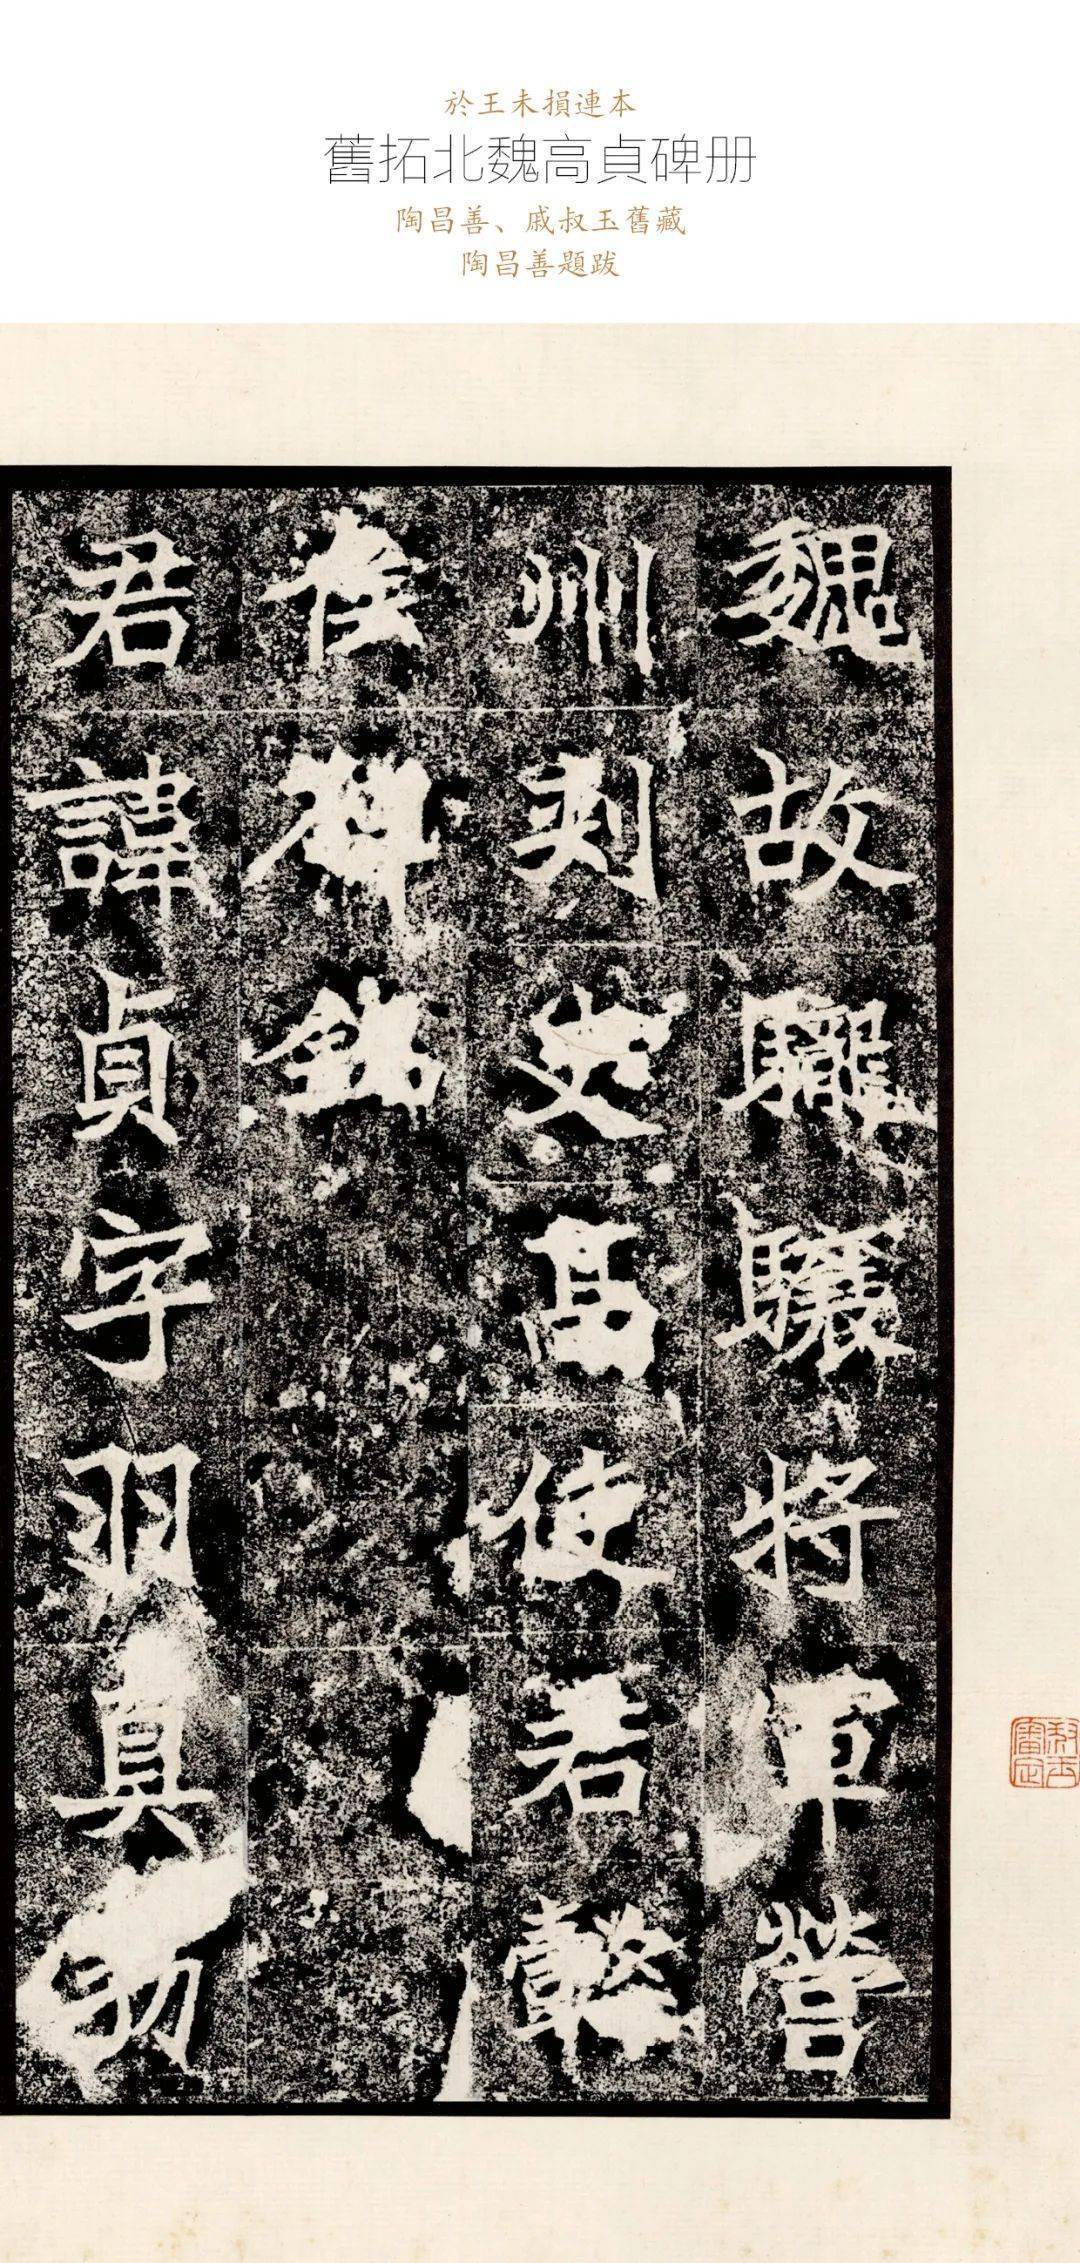 於王未損連本
舊拓北魏高貞碑册
陶昌善、戚叔玉舊藏
陶昌善題跋
魏故䮾驤將軍營
州刺史高使君懿
侯碑銘
君諱貞字羽真勃
叔玉審定